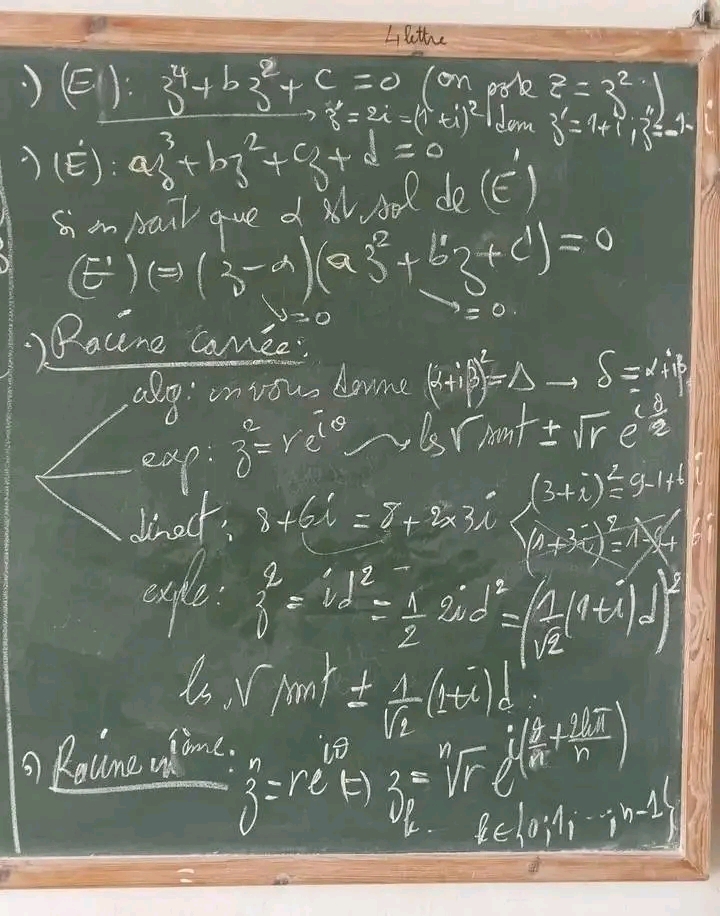 4 lettre
•) (E): z⁴ + bz² + c = 0 (on pose Z = z²)
→ z² = 2i = (1+i)² dom z' = 1+i ; z'' = -1-i
•) (E'): az³ + bz² + cz + d = 0
Si on sait que α est sol de (E')
(E') ⇔ (z-α)(az² + b'z + c') = 0
= 0 = 0
•) Racine carrée:
alg: on vous donne (α+iβ)² = Δ → δ = α+iβ
exp: z² = re^{iθ} ⟿ les √ sont ± √r e^{iθ/2}
direct: 8+6i = 8+2×3i (3+i)² = 9-1+6i
(1+3i)² = 1-9+6i
exple: z² = id² = 1/2 2id² = (1/√2 (1+i)d)²
les √ sont ± 1/√2 (1+i)d.
•) Racine nième: zⁿ = re^{iθ} ⇔ z_k = ⁿ√r e^{i(θ/n + 2kπ/n)}
k∈{0;1; ...; n-1}